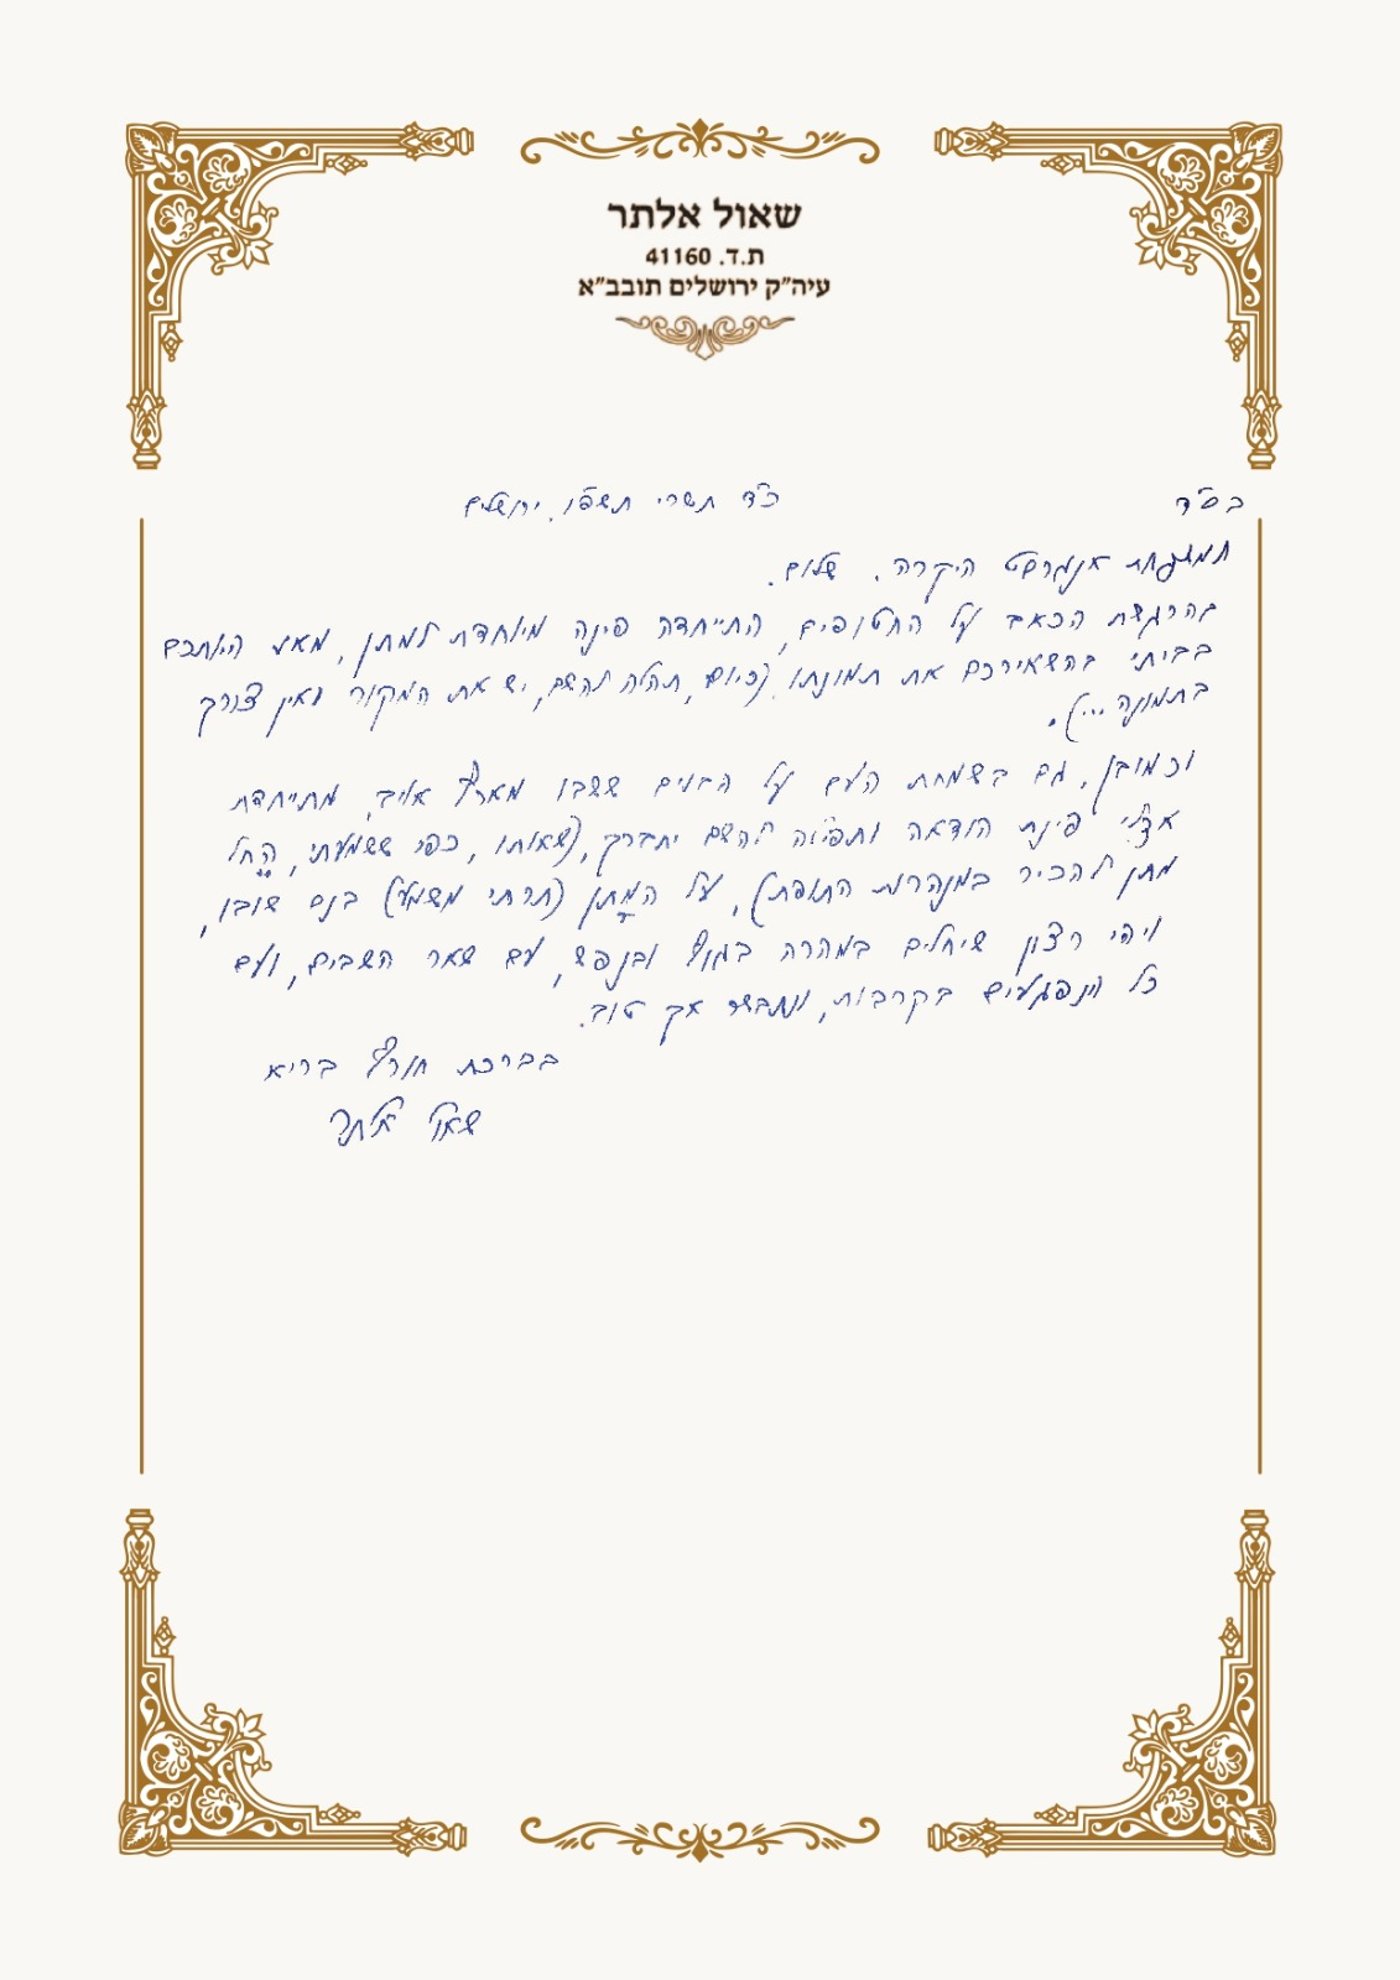 שאול אלתר
ת.ד. 41160
עיה"ק ירושלים תובב"א
בס"ד
כ"ד תשרי תשפ"ו. ירושלים
משפחת אנגרסט היקרה. שלום.
בהרגשת הכאב על החטופים, התייחדה פינה מיוחדת למתן, מאז היותכם
בביתי בהשאירכם את תמונתו (כיום, תהלה להשם, יש את המקור ואין צורך
בתמונה...).
וכמובן, גם בשמחת העם על הבנים ששבו מארץ אויב, מתייחדת
אצלי פינת הודאה ותפילה להשם יתברך, (שאותו, כפי ששמעתי, החל
מתן להכיר במנהרות התופת), על המתן (תרתי משמע) בנם שובו,
ויהי רצון שיחלים במהרה בגוף ובנפש, עם שאר השבים, ועם
כל הנפגעים בקרבות, ונתבשר אך טוב.
בברכת חורף בריא
שאול אלתר